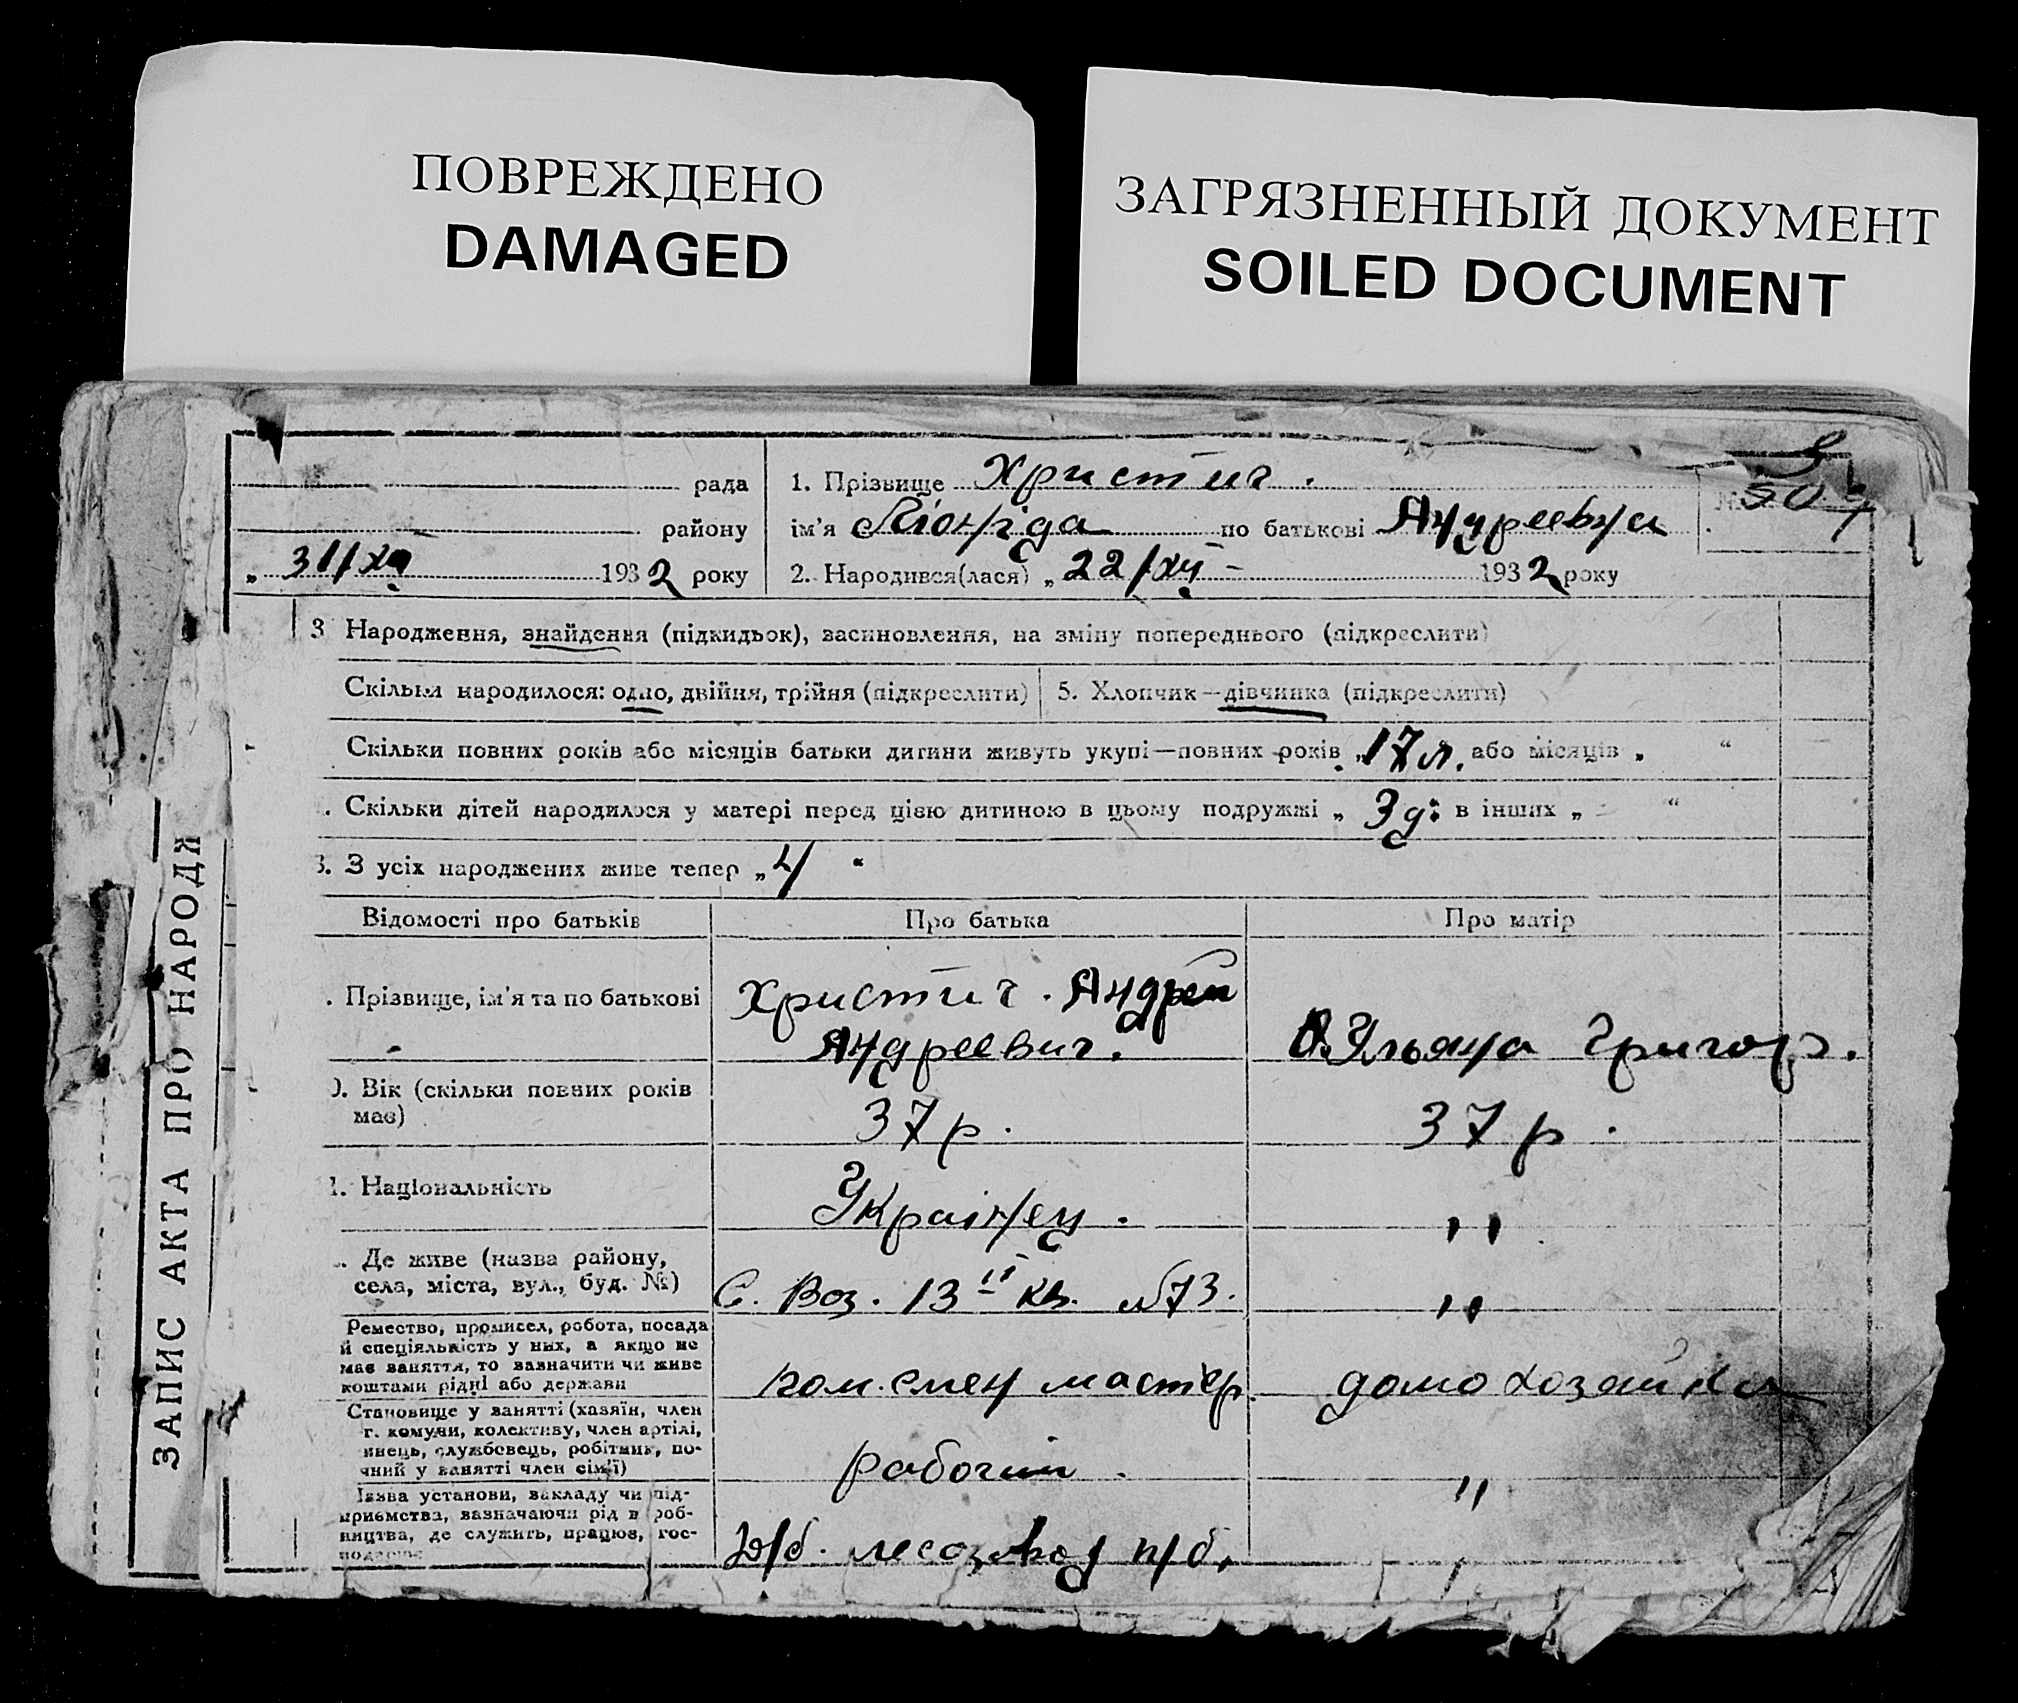 ПОВРЕЖДЕНО
DAMAGED
ЗАГРЯЗНЕННЫЙ ДОКУМЕНТ
SOILED DOCUMENT
рада
району
„ 31/XII 1932 року
1. Прізвище Христич.
ім'я Ліоніда по батькові Андреевна
2. Народився(лася) „ 22/XII - 1932 року
3 Народження, знайдення (підкидьок), засиновлення, на зміну попереднього (підкреслити)
Скільки народилося: одно, двійня, трійня (підкреслити)
5. Хлопчик — дівчинка (підкреслити)
Скільки повних років або місяців батьки дитини живуть укупі—повних років „ 17 л. або місяців „ “
. Скільки дітей народилося у матері перед цією дитиною в цьому подружжі „ 3 д. в інших „ - “
3. З усіх народжених живе тепер „ 4 “
Відомості про батьків
Про батька
Про матір
. Прізвище, ім'я та по батькові
Христич. Андрей
Андреевич.
Ульяна Григор.
0. Вік (скільки повних років
має)
37 р.
37 р.
1. Національність
Українец.
"
. Де живе (назва району,
села, міста, вул., буд. №)
С. Воз. 13 кв. №73.
"
Ремество, промисел, робота, посада
й спеціяльність у них, а якщо не
має заняття, то зазначити чи живе
коштами рідні або держави
пом. смен мастер.
домохозяйка
Становище у занятті (хазяїн, член
г. комуни, колективу, член артілі,
инець, службовець, робітник, по-
чний у занятті член сім'ї)
рабочий.
"
Назва установи, закладу чи під-
приємства, зазначаючи рід в роб-
ництва, де служить, працює, гос-
лесозавод
"
ЗАПИС АКТА ПРО НАРОДЖ